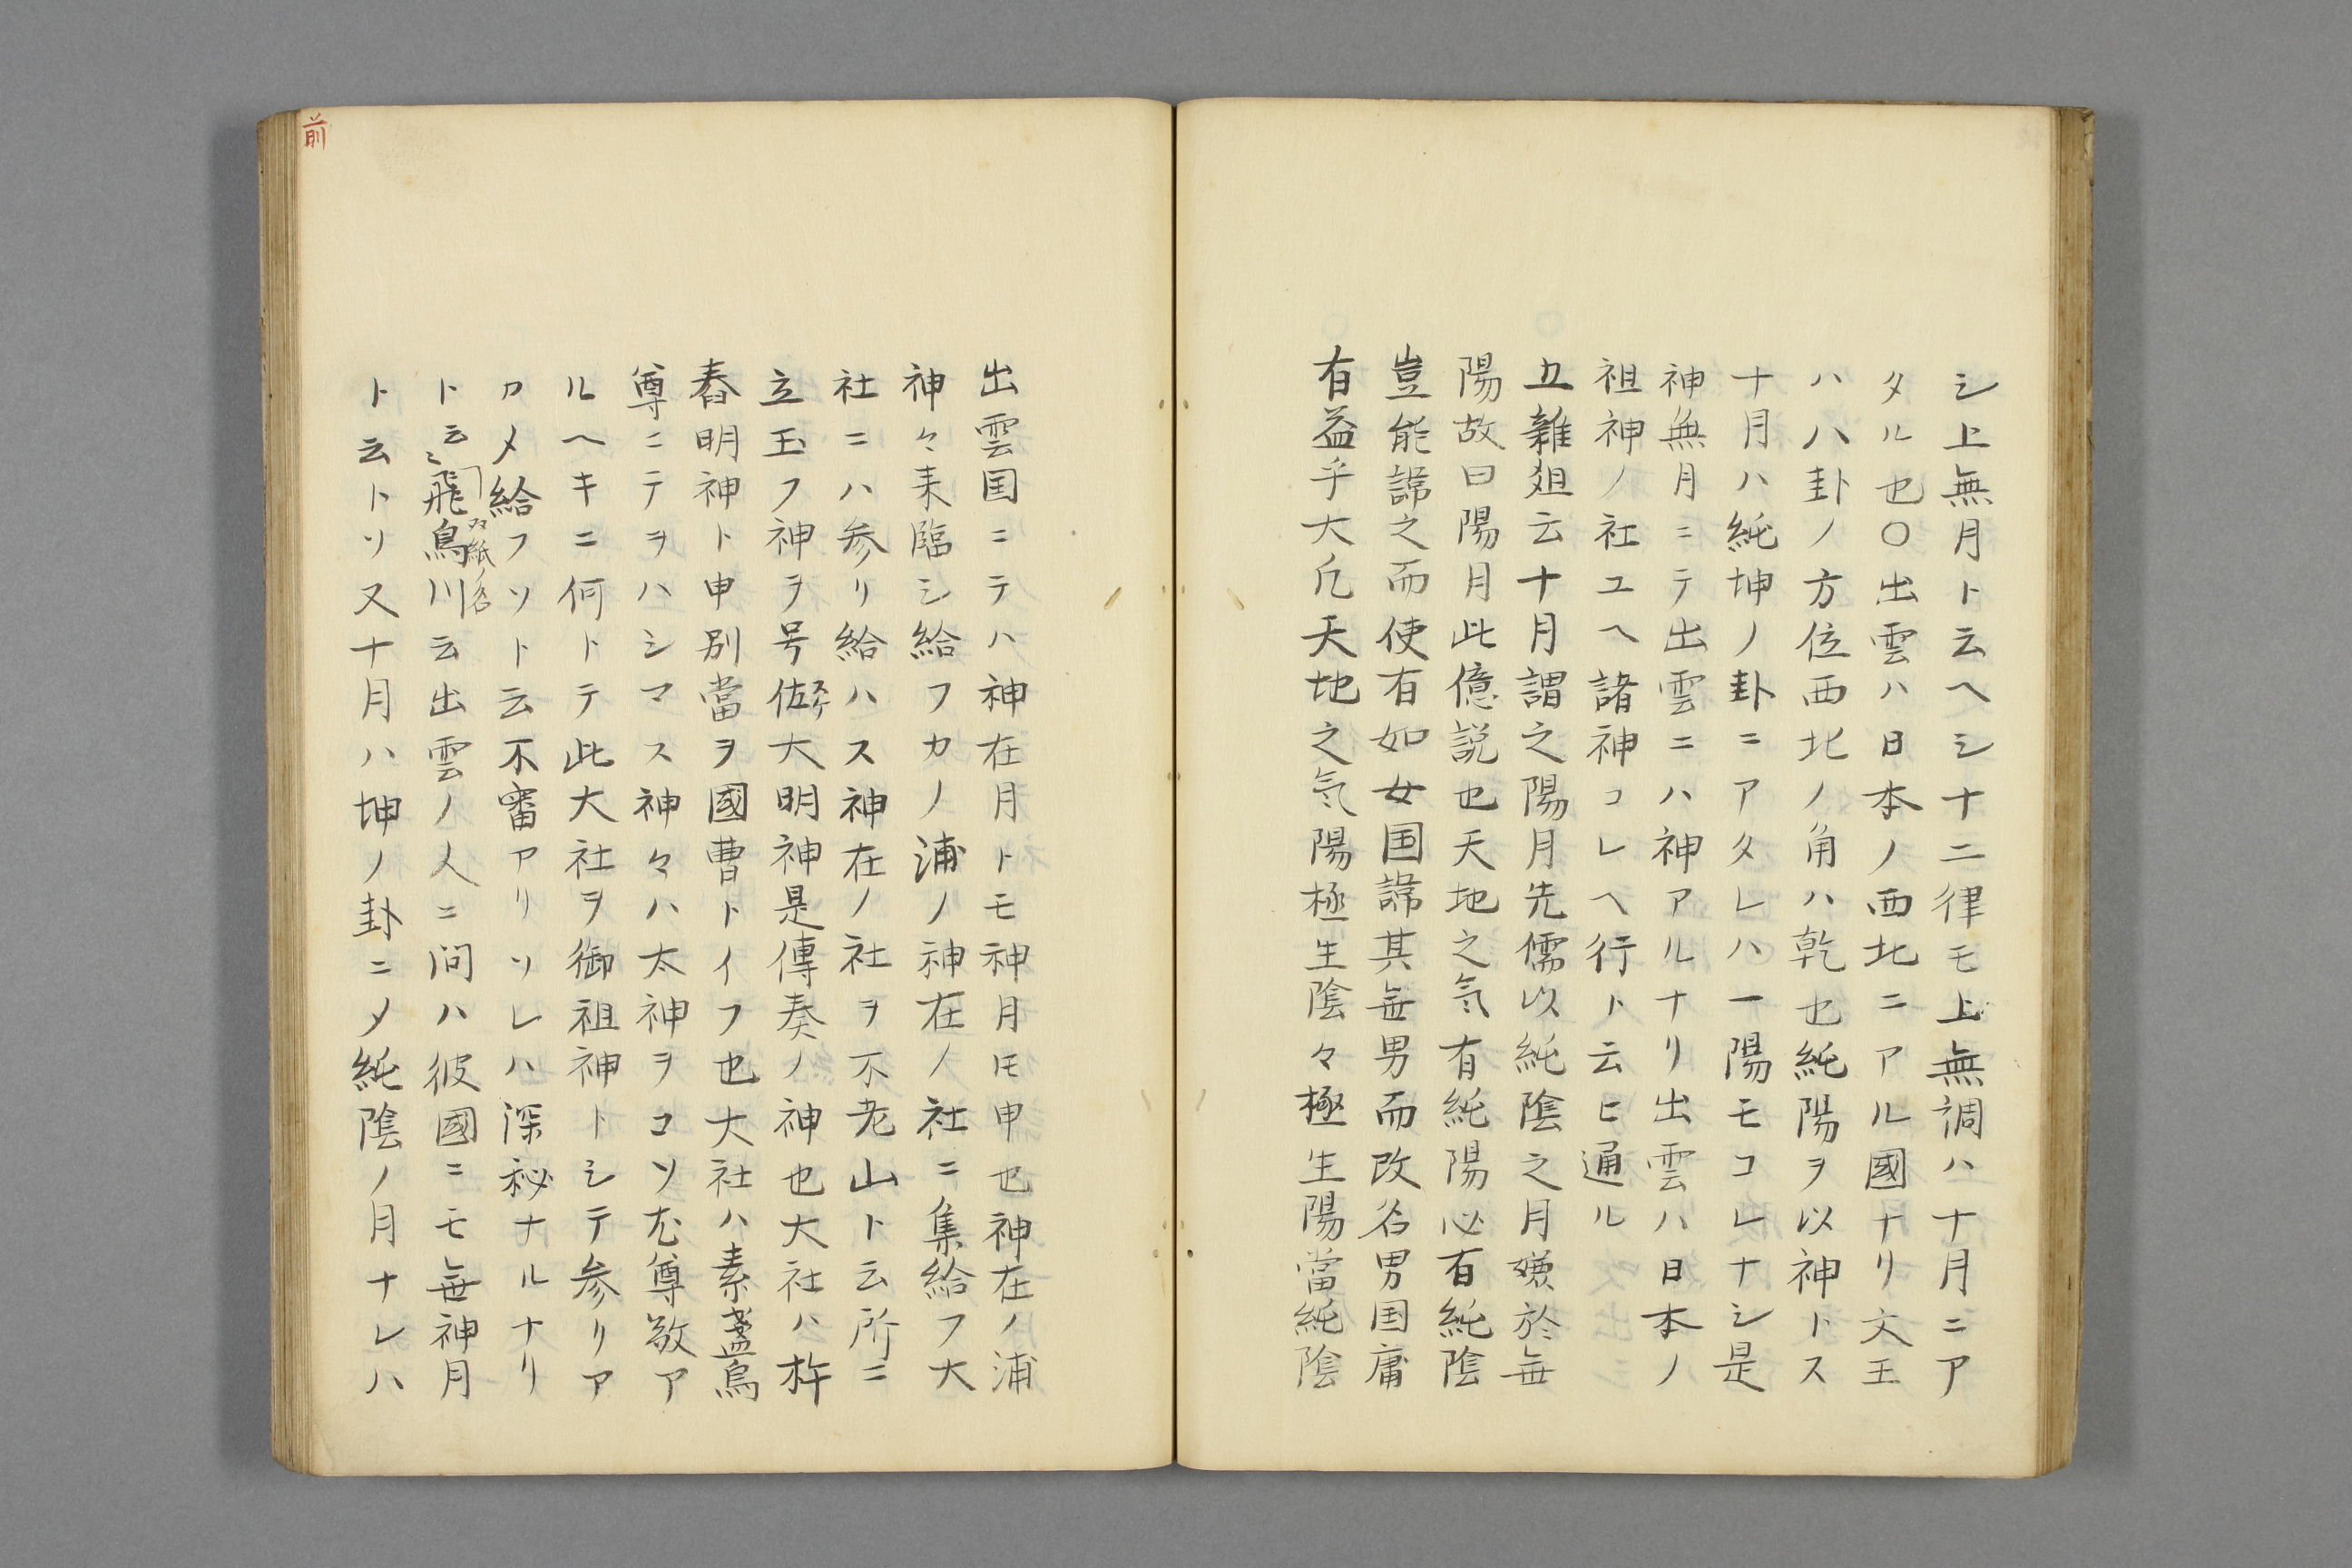 シ上無月ト云ヘシ十二律モ上無調ハ十月ニア
タル也〇出雲ハ日本ノ西北ニアル國ナリ文王
ハ八卦ノ方位西北ノ角ハ乾也純陽ヲ以神トス
十月ハ純坤ノ卦ニアタレハ一陽モコレナシ是
神無月ニテ出雲ニハ神アルナリ出雲ハ日本ノ
祖神ノ社ユヘ諸神コレヘ行ト云ヒ通ル
五雜爼云十月謂之陽月先儒以純陰之月嫌於無
陽故曰陽月此億説也天地之氣有純陽必有純陰
豈能諦之而使有如女国諦其無男而改名男国庸
有益乎大凡天地之気陽極生陰々極生陽當純陰
出雲国ニテハ神在月トモ神月トモ申也神在ノ浦
神々来臨シ給フカノ浦ノ神在ノ社ニ集給フ大
社ニハ参リ給ハス神在ノ社ヲ不老山ト云所ニ
立玉フ神ヲ号佐大明神是傳奏ノ神也大社ハ杵
舂明神ト申別當ヲ國曹トイフ也大社ハ素盞烏
尊ニテヲハシマス神々ハ太神ヲコソ尤尊敬ア
ルヘキニ何トテ此大社ヲ御祖神トシテ参リア
カメ給フソト云不審アリソレハ深秘ナルナリ
ト云々飛鳥川云出雲ノ人ニ问ハ彼國ニモ無神月
双紙ノ名
ト云トソ又十月ハ坤ノ卦ニメ純陰ノ月ナレハ
前